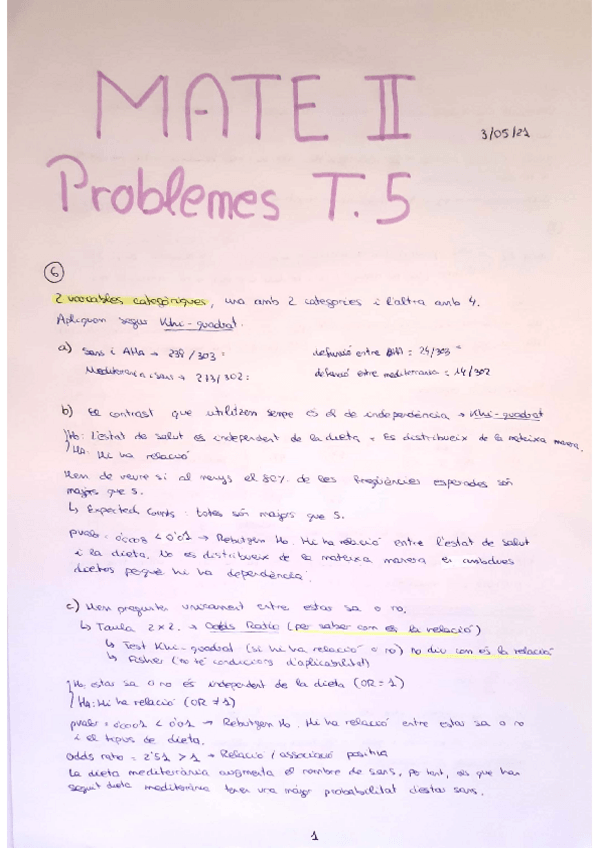 MATE II
3/05/21
Problemes T.5
6
2 variables categòriques, una amb 2 categories i l'altra amb 4.
Apliquem segur Khi-quadrat.
a) Sans i AHA → 239/303 = defunció entre AHA: 24/303 =
Mediterrània i sans → 273/302: defunció entre mediterrania: 14/302
b) El contrast que utilitzen sempre és el de independència → Khi-quadrat
H0: L'estat de salut es independent de la dieta = Es distribueix de la mateixa manera.
HA: Hi ha relació
Hem de veure si al menys el 80% de les freqüències esperades són
majors que 5.
↳ Expected Counts: totes són majors que 5.
pvalor = 0'0003 < 0'01 → Rebutgem H0. Hi ha relació entre l'estat de salut
i la dieta. No es distribueix de la mateixa manera en ambdues
dietes perquè hi ha dependència.
c) Hem preguntar unicament entre estar sa o no.
↳ Taula 2x2. → Odds Ratio (per saber com és la relació)
↳ Test Khi-quadrat (si hi ha relació o no) no diu com és la relació
↳ Fisher (no té condicions d'aplicabilitat)
H0: estar sa o no és independent de la dieta (OR=1)
HA: Hi ha relació (OR ≠ 1)
pvalor = 0'0001 < 0'01 → Rebutgem H0. Hi ha relació entre estar sa o no
i el tipus de dieta.
Odds ratio = 2'51 > 1 → Relació / associació positiva
La dieta mediterrània augmenta el nombre de sans, per tant, els que han
seguit dieta mediterrània tenen una major probabilitat d'estar sans.
1